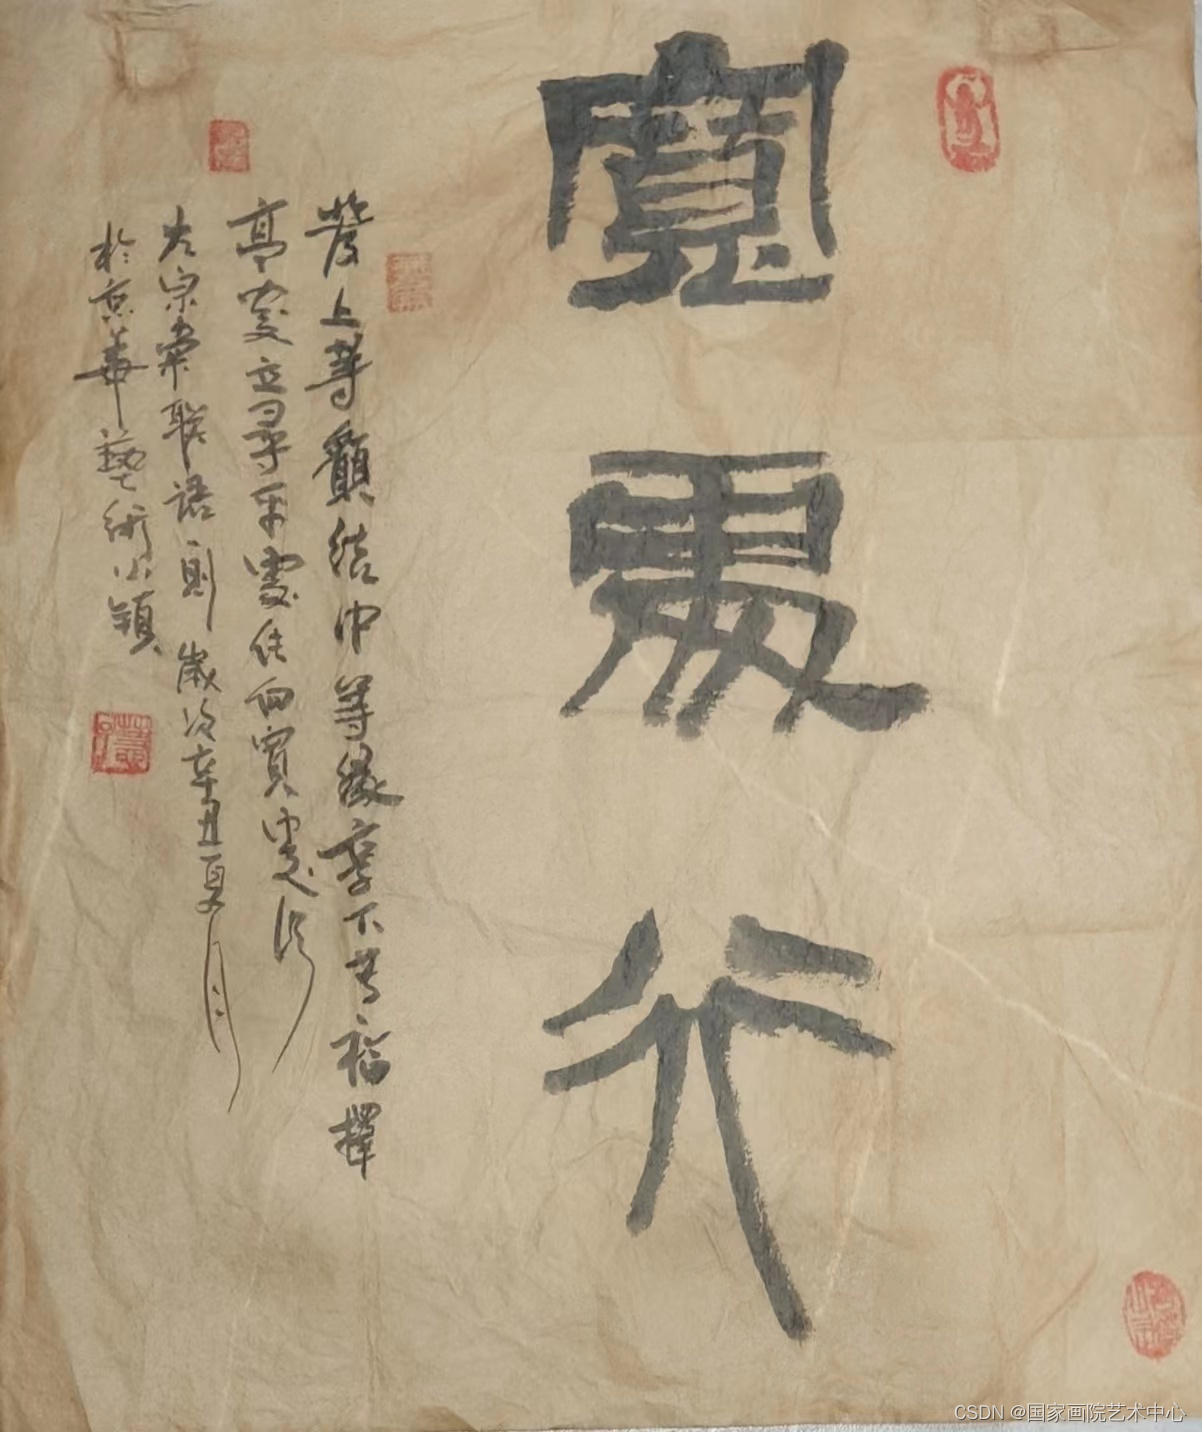 寬處行
發上等願結中等緣享下等福擇
高處立尋平處住向寬處行
左宗棠聯語一則歲次辛丑夏月
於京華藝術小鎮
CSDN @国家画院艺术中心